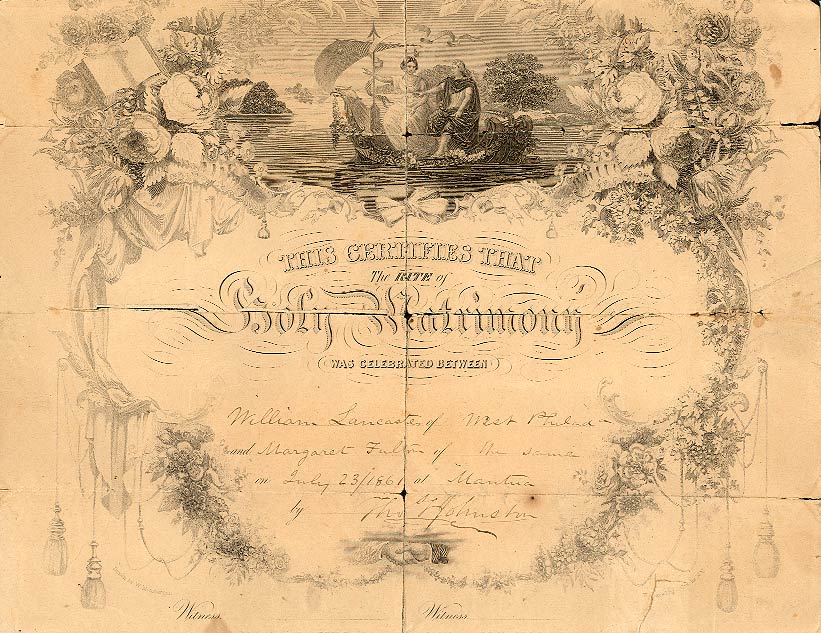 THIS CERTIFIES THAT
The RITE of
Holy Matrimony
WAS CELEBRATED BETWEEN
William Lancaster of West Philad-
and Margaret Fulton of the same
on July 23/1861 at Mantua
by Thos S Johnston
Witness
Witness